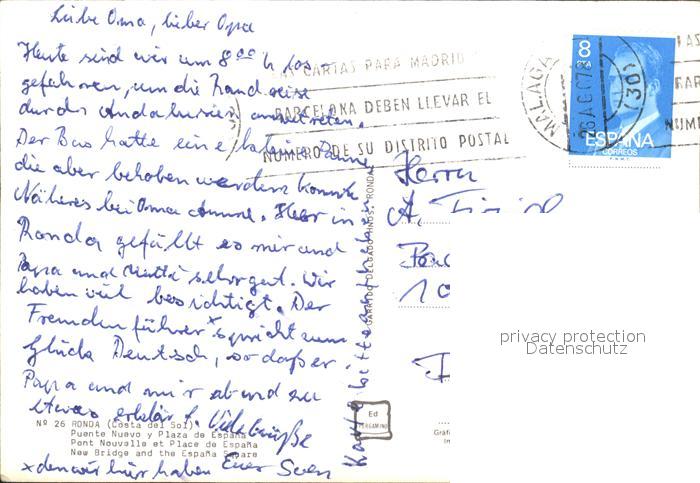 Liebe Oma, lieber Opa
Heute sind wir um 8⁰⁰ h los-
gefahren, um die Rundreise
durch Andalusien anzutreten.
Der Bus hatte eine kleine Panne
die aber behoben werden konnte
Näheres bei Oma Anni. Hier in
Ronda gefällt es mir und
Papa und Mutti sehr gut. Wir
haben viel besichtigt. Der
Fremdenführer x spricht zum
Glück Deutsch, so daß er
Papa und mir ab und zu
etwas erklärt. Viele Grüße
Euer Sven
x den wir hier haben
Karte bitte aufheben
LAS CARTAS PARA MADRID
BARCELONA DEBEN LLEVAR EL
NUMERO DE SU DISTRITO POSTAL
MALAGA
(30)
8
PTA
ESPAÑA
CORREOS
Herrn
A.
10
GARRIDO DELGADO HNOS. RONDA
Ed
PERGAMINO
Nº 26 RONDA (Costa del Sol)
Puente Nuevo y Plaza de España
Pont Nouvelle et Place de España
New Bridge and the España Square
privacy protection
Datenschutz